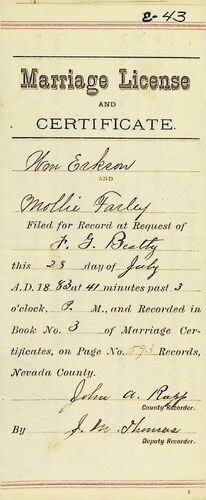 2-43
Marriage License
AND
CERTIFICATE.
Wm Erkson
AND
Mollie Farley
Filed for Record at Request of
F. G. Beatty
this 28 day of July
A.D. 1883 at 41 minutes past 3
o'clock, P. M., and Recorded in
Book No. 3 of Marriage Cer-
tificates, on Page No. 593 Records,
Nevada County.
John A. Rapp
County Recorder.
By J. M. Thomas
Deputy Recorder.